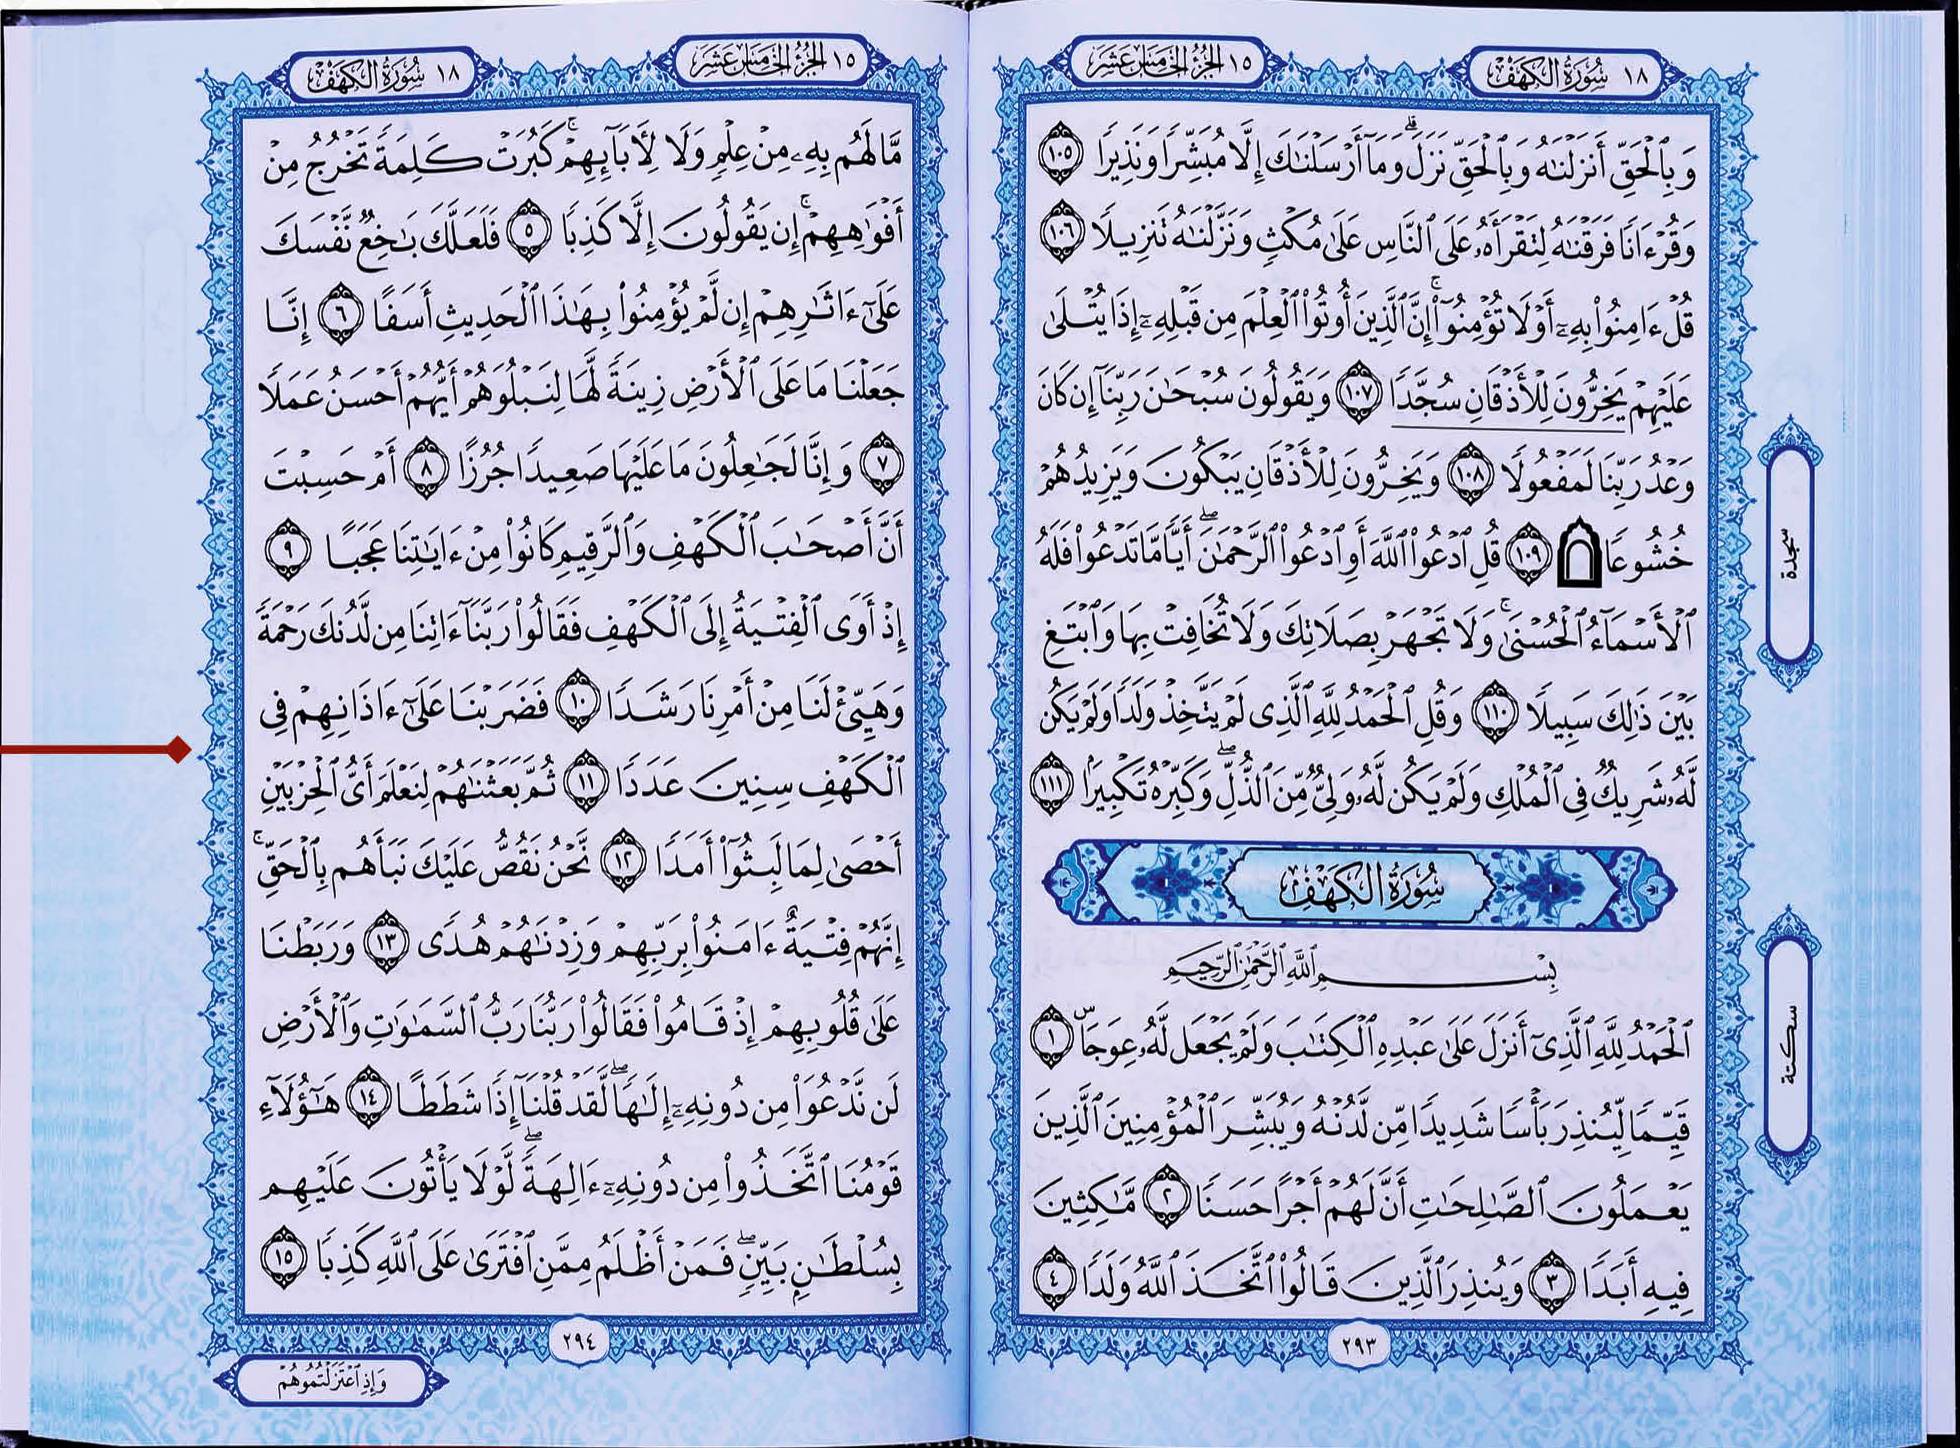 ١٨ سُورَةُ الكَهْفِ
١٥ الجُزْءُ الخَامِسَ عَشَرَ
وَبِٱلْحَقِّ أَنزَلْنَٰهُ وَبِٱلْحَقِّ نَزَلَ ۗ وَمَآ أَرْسَلْنَٰكَ إِلَّا مُبَشِّرًا وَنَذِيرًا ١٠٥
وَقُرْءَانًا فَرَقْنَٰهُ لِتَقْرَأَهُۥ عَلَى ٱلنَّاسِ عَلَىٰ مُكْثٍ وَنَزَّلْنَٰهُ تَنزِيلًا ١٠٦
قُلْ ءَامِنُوا۟ بِهِۦٓ أَوْ لَا تُؤْمِنُوٓا۟ ۚ إِنَّ ٱلَّذِينَ أُوتُوا۟ ٱلْعِلْمَ مِن قَبْلِهِۦٓ إِذَا يُتْلَىٰ
عَلَيْهِمْ يَخِرُّونَ لِلْأَذْقَانِ سُجَّدًا ١٠٧ وَيَقُولُونَ سُبْحَٰنَ رَبِّنَآ إِن كَانَ
وَعْدُ رَبِّنَا لَمَفْعُولًا ١٠٨ وَيَخِرُّونَ لِلْأَذْقَانِ يَبْكُونَ وَيَزِيدُهُمْ
خُشُوعًا ۩ ١٠٩ قُلِ ٱدْعُوا۟ ٱللَّهَ أَوِ ٱدْعُوا۟ ٱلرَّحْمَٰنَ ۖ أَيًّا مَّا تَدْعُوا۟ فَلَهُ
ٱلْأَسْمَآءُ ٱلْحُسْنَىٰ ۚ وَلَا تَجْهَرْ بِصَلَاتِكَ وَلَا تُخَافِتْ بِهَا وَٱبْتَغِ
بَيْنَ ذَٰلِكَ سَبِيلًا ١١٠ وَقُلِ ٱلْحَمْدُ لِلَّهِ ٱلَّذِى لَمْ يَتَّخِذْ وَلَدًا وَلَمْ يَكُن
لَّهُۥ شَرِيكٌ فِى ٱلْمُلْكِ وَلَمْ يَكُن لَّهُۥ وَلِىٌّ مِّنَ ٱلذُّلِّ ۖ وَكَبِّرْهُ تَكْبِيرًۢا ١١١
سُورَةُ الكَهْفِ
بِسْمِ ٱللَّهِ ٱلرَّحْمَٰنِ ٱلرَّحِيمِ
ٱلْحَمْدُ لِلَّهِ ٱلَّذِىٓ أَنزَلَ عَلَىٰ عَبْدِهِ ٱلْكِتَٰبَ وَلَمْ يَجْعَل لَّهُۥ عِوَجَاۜ ١
قَيِّمًا لِّيُنذِرَ بَأْسًا شَدِيدًا مِّن لَّدُنْهُ وَيُبَشِّرَ ٱلْمُؤْمِنِينَ ٱلَّذِينَ
يَعْمَلُونَ ٱلصَّٰلِحَٰتِ أَنَّ لَهُمْ أَجْرًا حَسَنًا ٢ مَّٰكِثِينَ
فِيهِ أَبَدًا ٣ وَيُنذِرَ ٱلَّذِينَ قَالُوا۟ ٱتَّخَذَ ٱللَّهُ وَلَدًا ٤
سجدة
سكتة
٢٩٣
١٥ الجُزْءُ الخَامِسَ عَشَرَ
١٨ سُورَةُ الكَهْفِ
مَّا لَهُم بِهِۦ مِنْ عِلْمٍ وَلَا لِـَٔابَآئِهِمْ ۚ كَبُرَتْ كَلِمَةً تَخْرُجُ مِنْ
أَفْوَٰهِهِمْ ۚ إِن يَقُولُونَ إِلَّا كَذِبًا ٥ فَلَعَلَّكَ بَٰخِعٌ نَّفْسَكَ
عَلَىٰٓ ءَاثَٰرِهِمْ إِن لَّمْ يُؤْمِنُوا۟ بِهَٰذَا ٱلْحَدِيثِ أَسَفًا ٦ إِنَّا
جَعَلْنَا مَا عَلَى ٱلْأَرْضِ زِينَةً لَّهَا لِنَبْلُوَهُمْ أَيُّهُمْ أَحْسَنُ عَمَلًا
٧ وَإِنَّا لَجَٰعِلُونَ مَا عَلَيْهَا صَعِيدًا جُرُزًا ٨ أَمْ حَسِبْتَ
أَنَّ أَصْحَٰبَ ٱلْكَهْفِ وَٱلرَّقِيمِ كَانُوا۟ مِنْ ءَايَٰتِنَا عَجَبًا ٩
إِذْ أَوَى ٱلْفِتْيَةُ إِلَى ٱلْكَهْفِ فَقَالُوا۟ رَبَّنَآ ءَاتِنَا مِن لَّدُنكَ رَحْمَةً
وَهَيِّئْ لَنَا مِنْ أَمْرِنَا رَشَدًا ١٠ فَضَرَبْنَا عَلَىٰٓ ءَاذَانِهِمْ فِى
ٱلْكَهْفِ سِنِينَ عَدَدًا ١١ ثُمَّ بَعَثْنَٰهُمْ لِنَعْلَمَ أَىُّ ٱلْحِزْبَيْنِ
أَحْصَىٰ لِمَا لَبِثُوٓا۟ أَمَدًا ١٢ نَّحْنُ نَقُصُّ عَلَيْكَ نَبَأَهُم بِٱلْحَقِّ ۚ
إِنَّهُمْ فِتْيَةٌ ءَامَنُوا۟ بِرَبِّهِمْ وَزِدْنَٰهُمْ هُدًى ١٣ وَرَبَطْنَا
عَلَىٰ قُلُوبِهِمْ إِذْ قَامُوا۟ فَقَالُوا۟ رَبُّنَا رَبُّ ٱلسَّمَٰوَٰتِ وَٱلْأَرْضِ
لَن نَّدْعُوَا۟ مِن دُونِهِۦٓ إِلَٰهًا ۖ لَّقَدْ قُلْنَآ إِذًا شَطَطًا ١٤ هَٰٓؤُلَآءِ
قَوْمُنَا ٱتَّخَذُوا۟ مِن دُونِهِۦٓ ءَالِهَةً ۖ لَّوْلَا يَأْتُونَ عَلَيْهِم
بِسُلْطَٰنٍۭ بَيِّنٍ ۖ فَمَنْ أَظْلَمُ مِمَّنِ ٱفْتَرَىٰ عَلَى ٱللَّهِ كَذِبًا ١٥
٢٩٤
وَإِذِ ٱعْتَزَلْتُمُوهُمْ